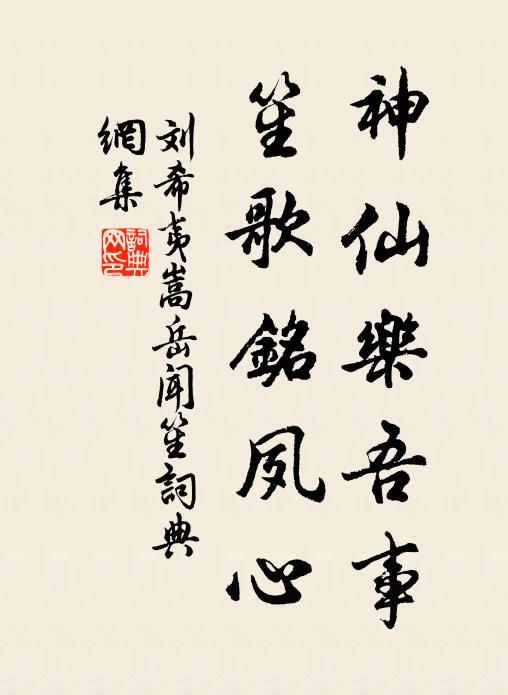 神仙樂吾事
笙歌銘夙心
刘希夷嵩岳闻笙詞典
網集
詞典
网印